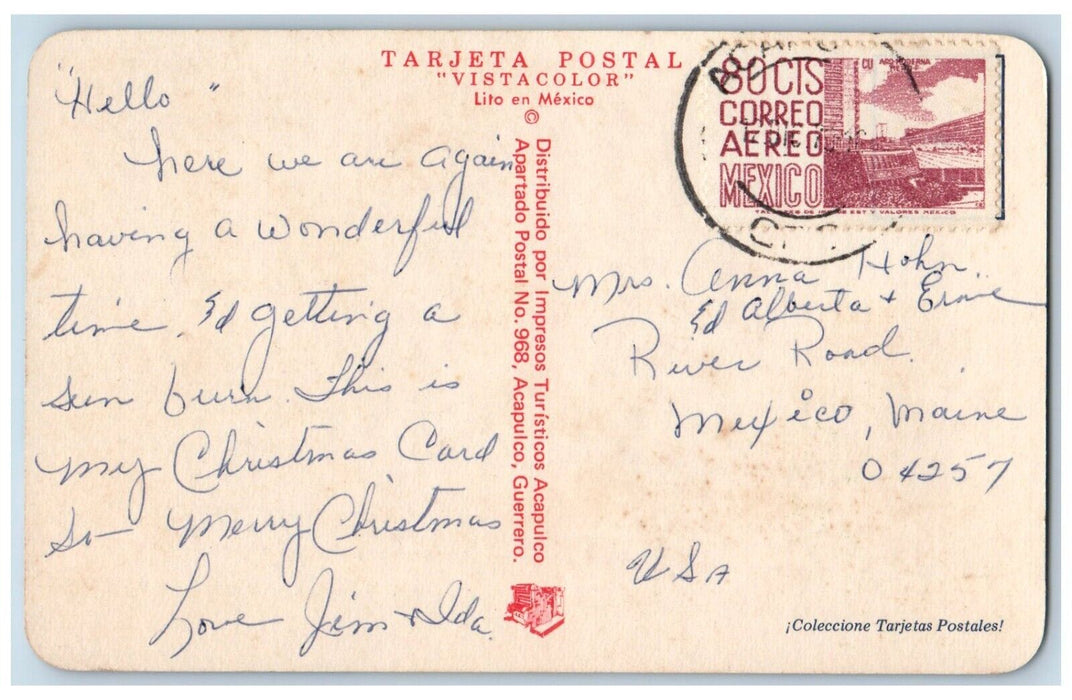 TARJETA POSTAL
"VISTACOLOR"
Lito en México
©
Distribuido por Impresos Turísticos Acapulco
Apartado Postal No. 968, Acapulco, Guerrero.
"Hello"
here we are again
having a wonderful
time, Ed getting a
sun burn. This is
my Christmas Card
so— Merry Christmas
Love Jim & Ida.
80 CTS
CORREO
AEREO
MEXICO
Mrs. Anna Hohn
Ed Alberta + Ernie
River Road.
Mexico, Maine
04257
USA
¡Coleccione Tarjetas Postales!